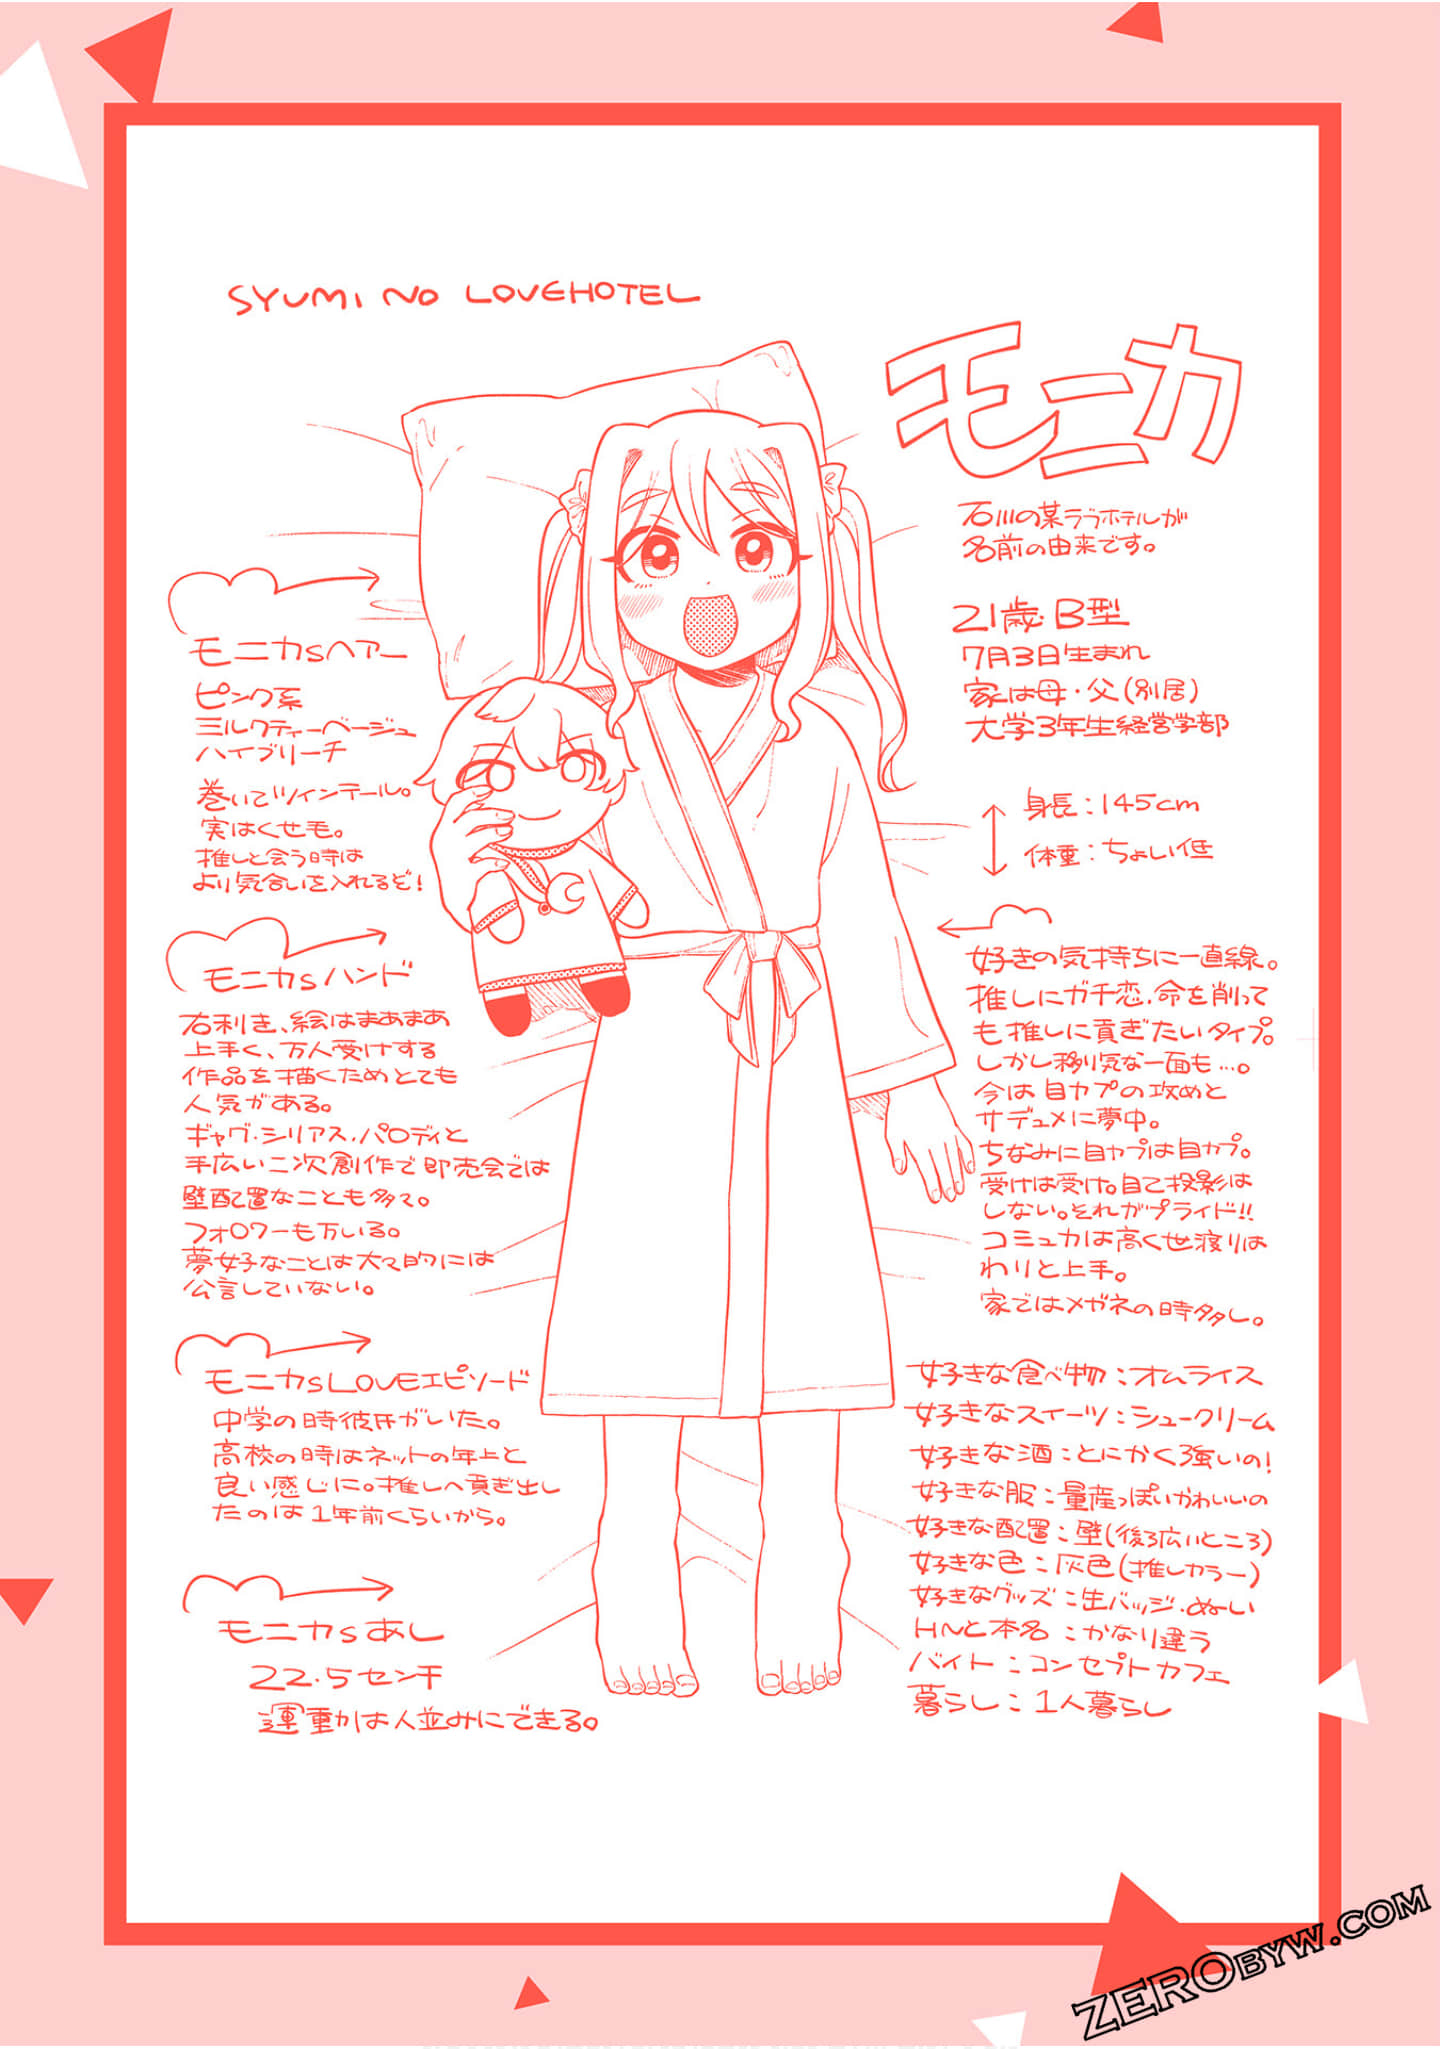 SYUMI NO LOVEHOTEL
モニカ
石川の某ラブホテルが
名前の由来です。
21歳 B型
7月3日生まれ
家は母・父(別居)
大学3年生経営学部
身長：145cm
体重：ちょい低
好きの気持ちに一直線。
推しにガチ恋、命を削って
も推しに貢ぎたいタイプ。
しかし移り気な一面も…。
今は自カプの攻めと
サデュメに夢中。
ちなみに自カプは自カプ。
受けは受け。自己投影は
しない。それがプライド!!
コミュカは高く世渡りは
わりと上手。
家ではメガネの時多し。
好きな食べ物：オムライス
好きなスイーツ：シュークリーム
好きな酒：とにかく強いの!
好きな服：量産っぽいかわいいの
好きな配置：壁(後ろ広いところ)
好きな色：灰色(推しカラー)
好きなグッズ：生バッジ・ぬい
HNと本名：かなり違う
バイト：コンセプトカフェ
暮らし：1人暮らし
モニカsヘアー
ピンク系
ミルクティーベージュ
ハイブリーチ
巻いてツインテール。
実はくせ毛。
推しと会う時は
より気合いを入れるぞ!
モニカsハンド
右利き、絵はまあまあ
上手く、万人受けする
作品を描くためとても
人気がある。
ギャグ・シリアス・パロディと
手広い二次創作で即売会では
壁配置なことも多々。
フォロワーも万いる。
夢女子なことは大々的には
公言していない。
モニカsLOVEエピソード
中学の時彼氏がいた。
高校の時はネットの年上と
良い感じに。推しへ貢ぎ出し
たのは1年前くらいから。
モニカsあし
22.5センチ
運動は人並みにできる。
ZEROBYW.COM